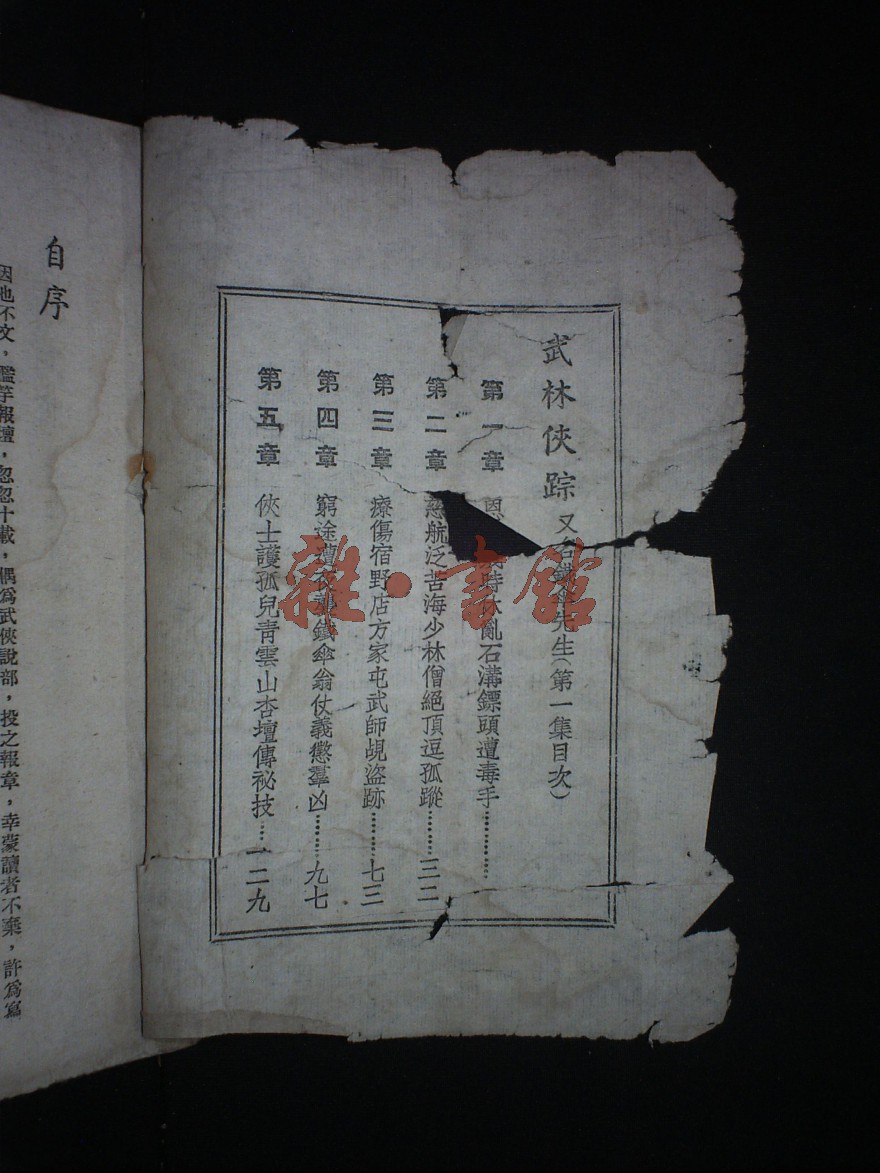 武林俠踪 又名鐵傘先生(第一集目次)
第一章 恩 時休亂石溝鏢頭遭毒手…………
第二章 慈航泛苦海少林僧絕頂逗孤蹤………三二
第三章 療傷宿野店方家屯武師覘盜跡………七三
第四章 窮途遭夜襲鐵傘翁仗義懲羣凶………九七
第五章 俠士護孤兒青雲山杏壇傳祕技……一二九
自序
因也不文,濫竽報壇,忽忽十載,偶爲武俠說部,投之報章,幸蒙讀者不棄,許爲寫
雜·書館